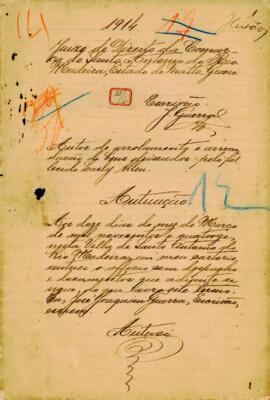 1914
Juizo de Direito da Comar-
ca de Santo Antonio do Rio
Madeira, Estado de Matto Grosso
Escrivão
J Guerra
Autos de arrolamento e arreca-
dação de bens deixados pelo fal-
lecido Early Allen.
Autuação
Aos doze dias do mez de Março
de mil novecentos e quatorze
nesta Villa de Santo Antonio do
Rio Madeira, em meu cartorio
autuei o officio
e documentos que adiante se
segue, do que lavro este termo.
Eu, José Joaquim Guerra, Escrivão,
escrevi
Autuei
12